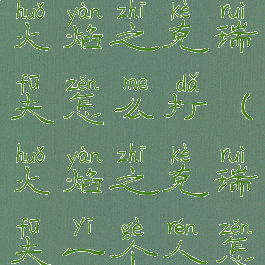 huǒ yàn zhī kè ruì
火焰之克瑞
fū zěn me dǎ
夫怎么打（
huǒ yàn zhī kè ruì
火焰之克瑞
fū yī gè rén zěn
夫一个人怎